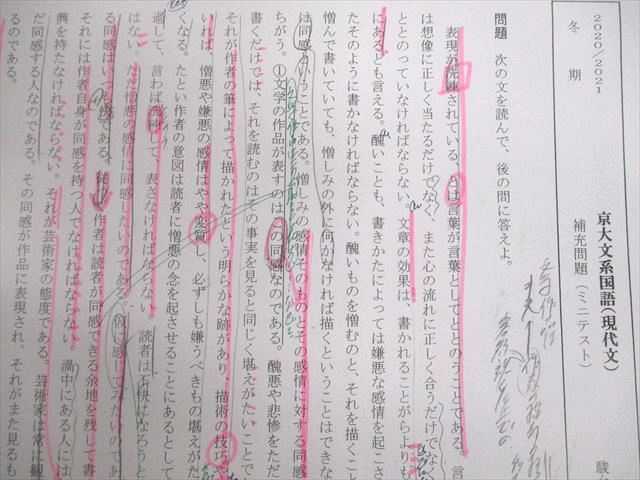 2020/2021
冬　期
京大文系国語（現代文）
補充問題（ミニテスト）
駿台
問題　次の文を読んで、後の問に答えよ。
表現が洗練されている、とは言葉が言葉としてととのうことである。言
は想像に正しく当たるだけでなく、また心の流れに正しく合うだけでな
ととのっていなければならない。文章の効果は、書かれることがらよりも
にあるとも言える。醜いことも、書きかたによっては嫌悪な感情を起こさ
たそのように書かなければならない。醜いものを憎むのと、それを描くこ
憎んで書いていても、憎しみの外に何かなければ描くということはできな
は同感ということである。憎しみの感情そのものとその感情に対する同感
ちがう。①文学の作品が表すのはこの同感なのである。醜悪や悲惨をただ
書くだけでは、それを読むのはその事実を見ると同じく堪えがたいことで
それが作者の筆によって描かれたという明らかな跡があり、描術の技巧
いれば、憎悪や嫌悪の感情はやや変質し、必ずしも嫌うべきもの堪えがた
くなる。たとい作者の意図は読者に憎悪の念を起させることにあるとして
過して、言わば洗練して、表さなければならない。読者は不快になろうと
はない。ただ憎悪の感情に同感したいのである。仮に感じてみたいのであ
る同感は
である。
作者は読者が同感できる余地を残して書
それには作者自身が同感を持つ人でなければならない。渦中にある人には
興を持たなければならない。それが芸術家の態度である。芸術家は常に観
だ同感する人なのである。その同感が作品に表現され、それがまた見るも
るのである。